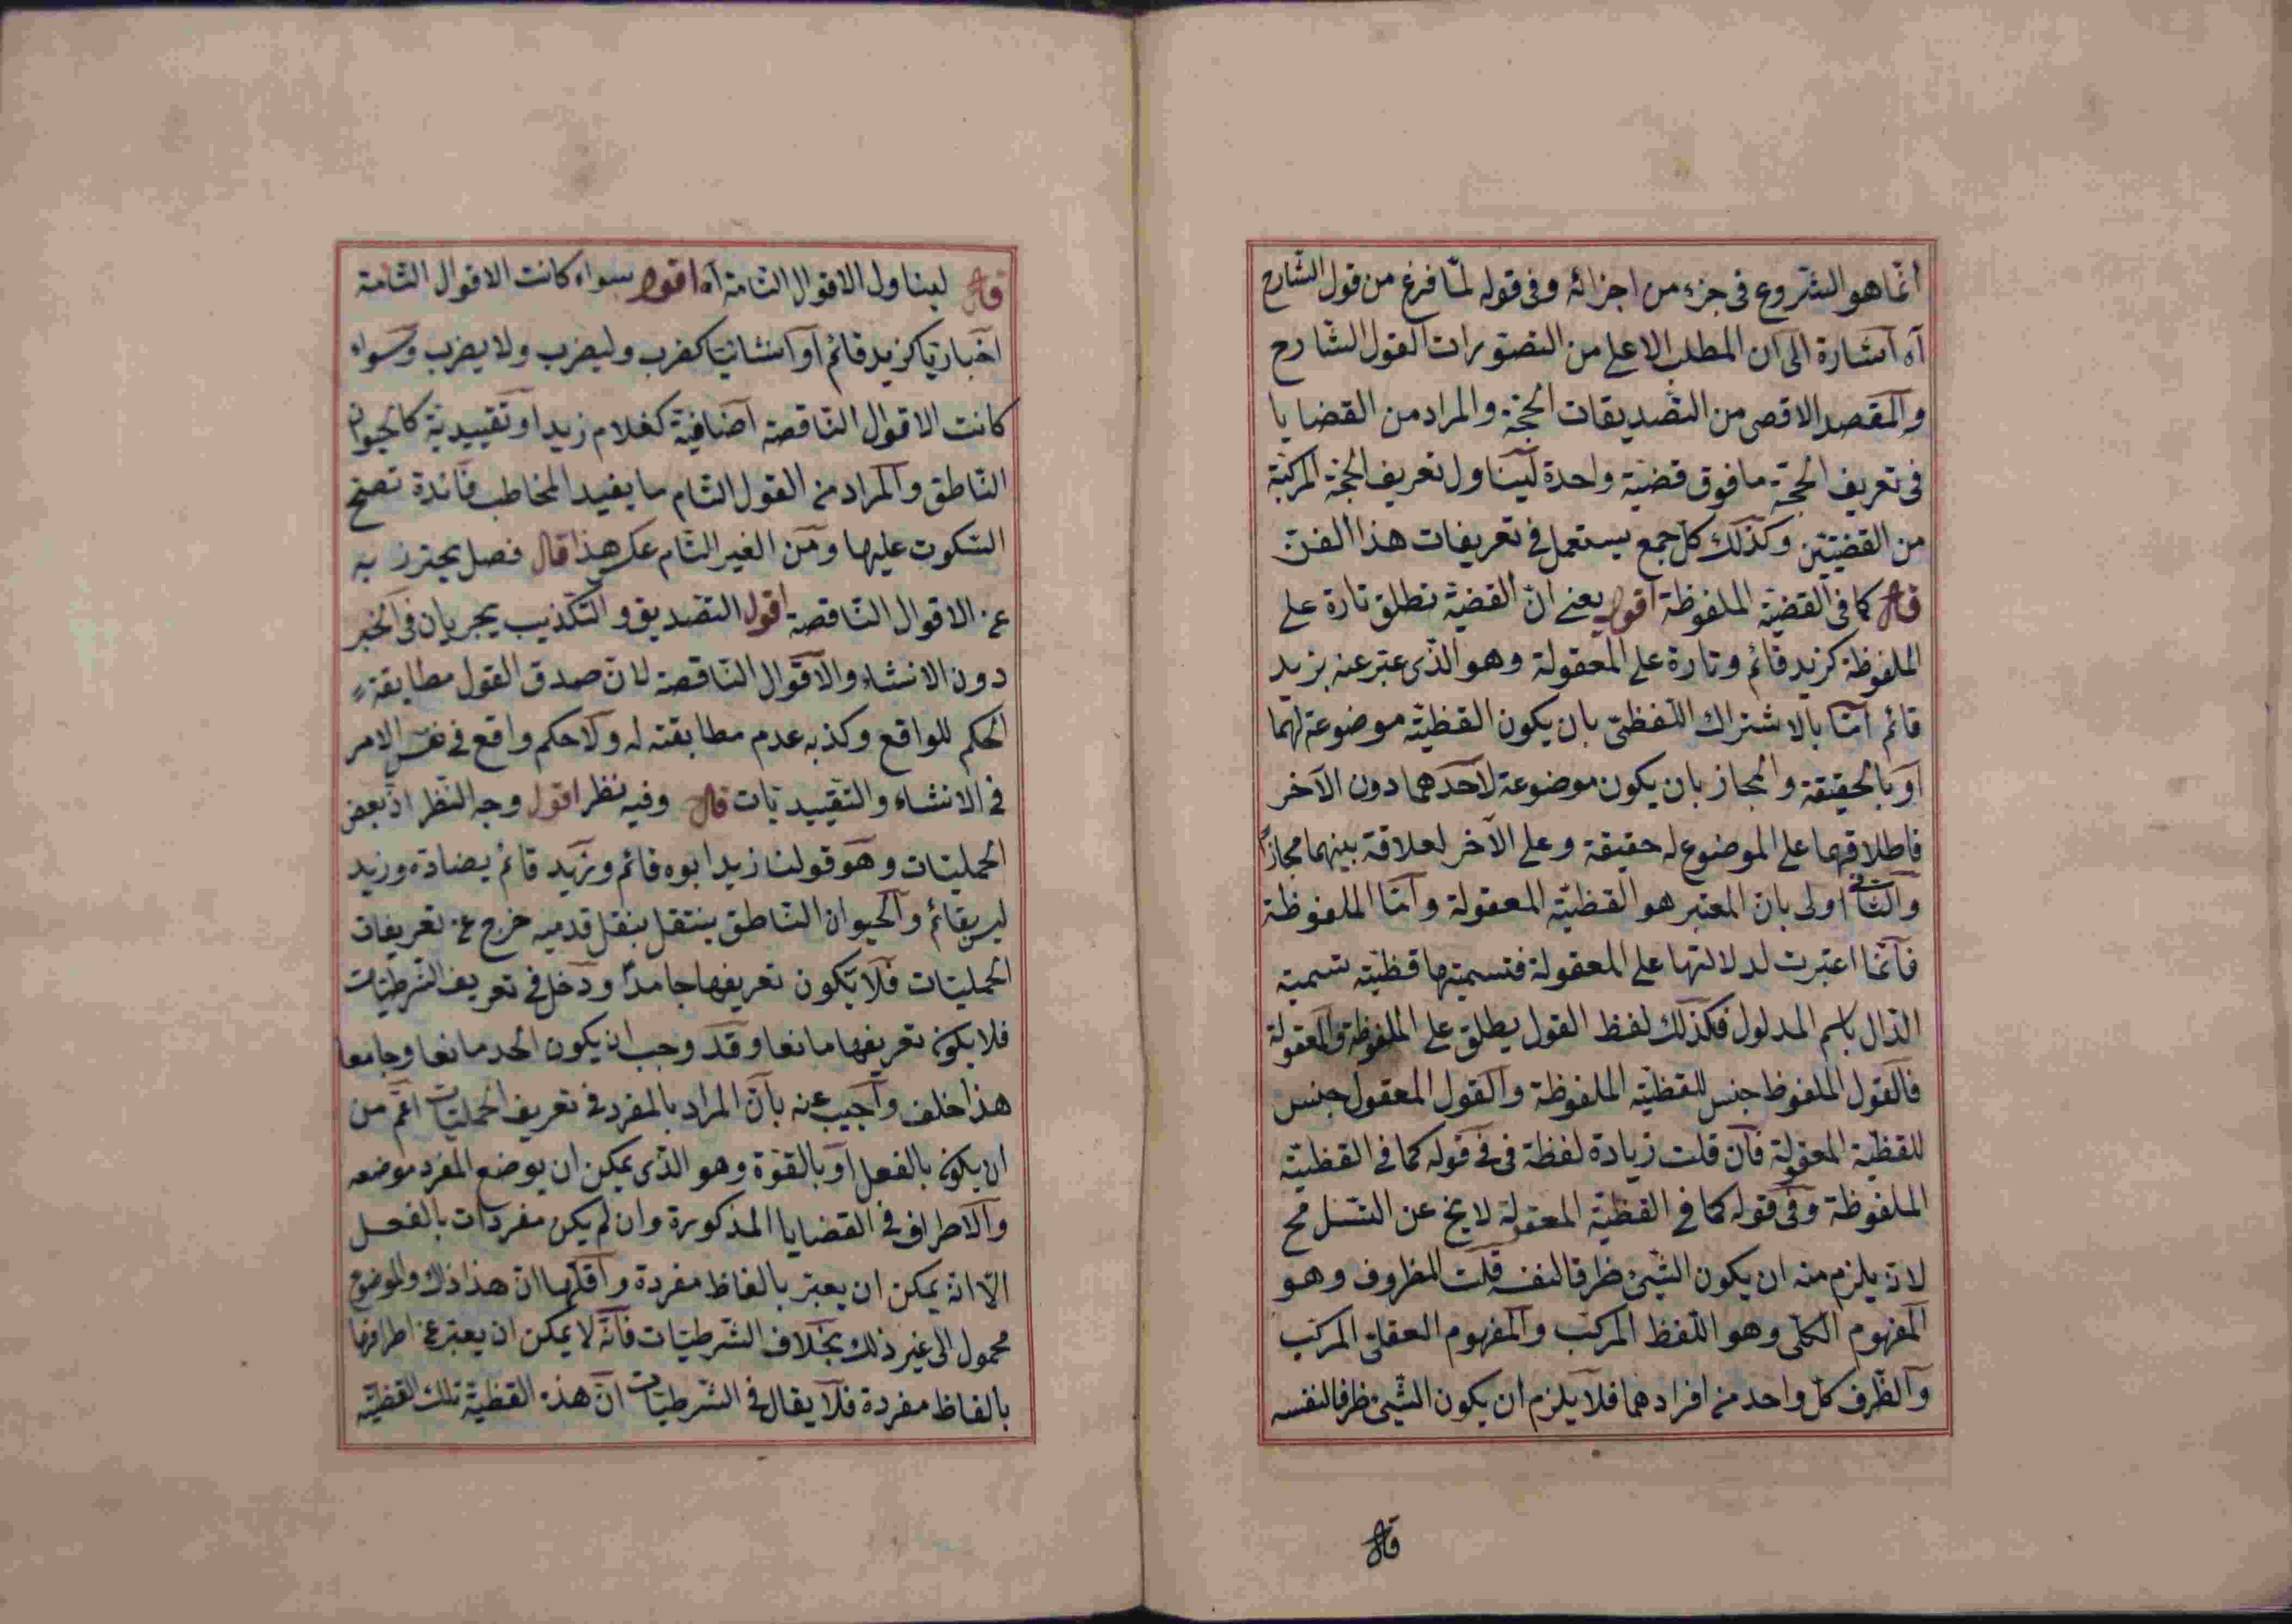 انّما هو الشروع فى جزء من اجزائه وفى قوله لمّا فرغ من قول الشارح
آه اشارة الى ان المطلب الاعلى من التصورات القول الشارح
والمقصد الاقصى من التصديقات الحجّة والمراد من القضايا
فى تعريف الحجّة ما فوق قضيّة واحدة ليتناول تعريف الحجّة المركبّة
من القضيتين وكذلك كل جمع يستعمل فى تعريفات هذا الفنّ
قال كما فى القضيّة الملفوظة اقول يعنى انّ القضيّة تطلق تارة على
الملفوظة كزيد قائم وتارة على المعقولة وهو الذّى عبّر عنه بزيد
قائم امّا بالاشتراك اللّفظىّ بان يكون القظيّة موضوعة لهما
او بالحقيقة والمجاز بان يكون موضوعة لاحدهما دون الآخر
فاطلاقهما على الموضوع له حقيقة وعلى الآخر لعلاقة بينهما مجازاً
والثانى اولى بان المعتبر هو القظيّة المعقولة وامّا الملفوظة
فانّما اعتبرت لدلالتها على المعقولة فتسميتها قظيّة تسمية
الدّال باسم المدلول فكذلك لفظ القول يطلق على الملفوظة والمعقولة
فالقول الملفوظ جنس للقظيّة الملفوظة والقول المعقول جنس
للقظيّة المعقولة فان قلت زيادة لفظة فى فى قوله كما فى القظيّة
الملفوظة وفى قوله كما فى القظيّة المعقولة لا يخ عن
لانه يلزم منه ان يكون الشّىء ظرفا لنفسه قلت المظروف وهو
المفهوم الكلّى وهو اللّفظ المركّب والمفهوم العقلىّ المركّب
والظّرف كل واحد من افرادهما فلا يلزم ان يكون الشّىء ظرفا لنفسه
قال
قال ليتناول الاقوال التامة آه اقول سواء كانت الاقوال التّامة
اخباريّا كزيد قائم او انشائيّا كضرب وليضرب ولا يضرب وسواء
كانت الاقوال النّاقصة اضافيّة كغلام زيد او تقييدية كالحيوان
النّاطق والمراد من القول التّام ما يفيد المخاطب فائدة تصحّ
السّكوت عليها ومن الغير التّام عكس هذا قال فصل يحترز به
عن الاقوال النّاقصة اقول التّصديق والتّكذيب يجريان فى الخبر
دون الانشاء والاقوال النّاقصة لانّ صدق القول مطابقة
الحكم للواقع وكذبه عدم مطابقته له ولا حكم واقع فى نفس الامر
فى الانشاء والتّقييديّات قال وفيه نظر اقول وجه النّظر انّ بعض
الحمليّات وهو قولنا زيد ابوه قائم وزيد قائم يضادّه وزيد
ليس بقائم والحيوان النّاطق ينتقل بنقل قدميه خرج عن تعريفات
الحمليّات فلا يكون تعريفها جامعاً ودخل فى تعريف الشّرطيّات
فلا يكون تعريفها مانعا وقد وجب ان يكون الحد مانعا وجامعا
هذا خلف واجيب عنه بانّ المراد بالمفرد فى تعريف الحمليّات اعمّ من
ان يكون بالفعل او بالقوّة وهو الذّى يمكن ان يوضع المفرد موضعه
والاطراف فى القضايا المذكورة وان لم يكن مفردات بالفعل
الّا انّه يمكن ان يعبّر بالفاظ مفردة واقلّها انّ هذا ذلك والموضوع
محمول الى غير ذلك بخلاف الشّرطيّات فانّه لا يمكن ان يعبّر عن اطرافها
بالفاظ مفردة فلا يقال فى الشّرطيّات انّ هذه القظيّة تلك القضيّة